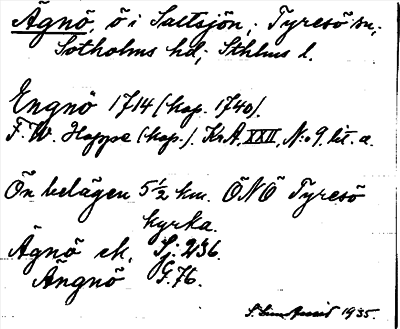 Ägnö, ö i Saltsjön, Tyresö sn,
Sotholms hd, Sthlms l.
Engnö 1714 (kop. 1740).
F. W. Hoppe (kop.). KrA, XXII, N:o 9. lit. a.
Ön belägen 5 1/2 km. ÖNÖ Tyresö
kyrka.
Ägnö ek. Sj: 236.
Ängnö G. 76.
1935.